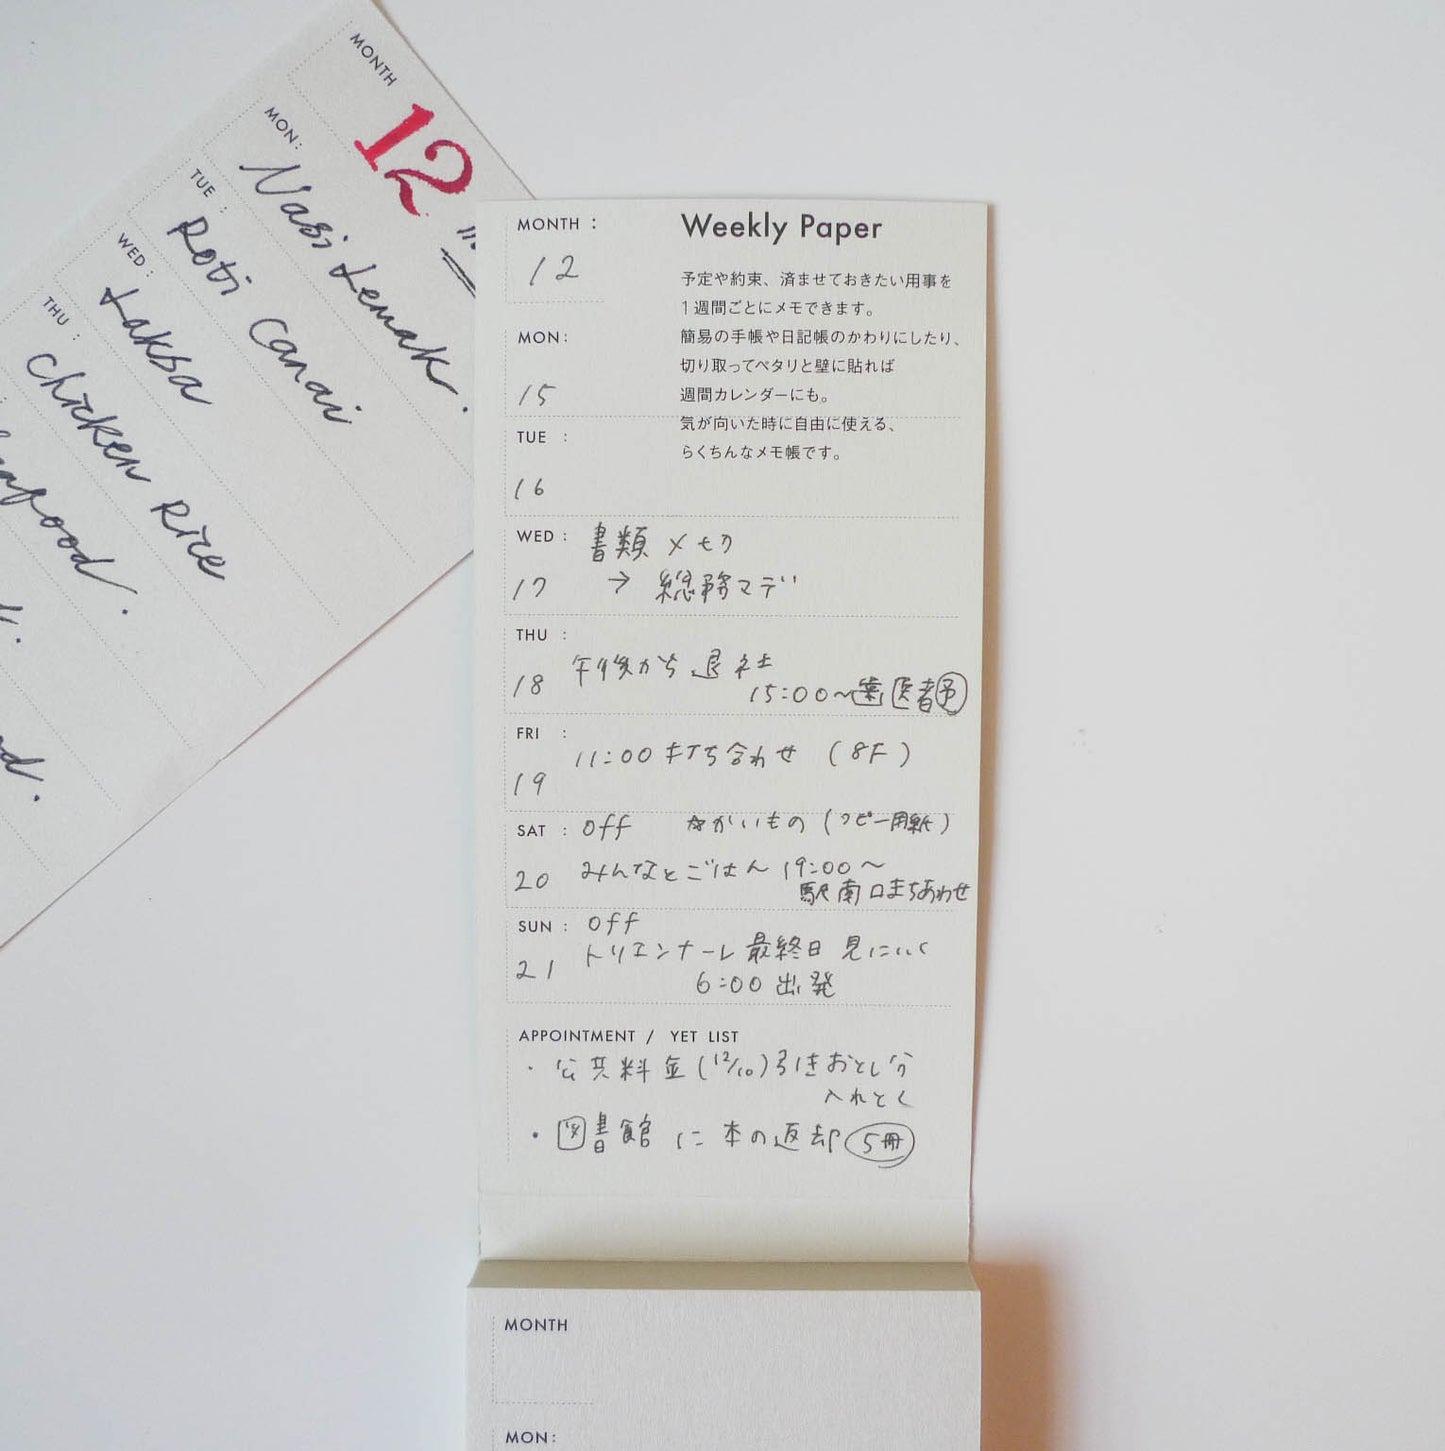 MONTH
12
MON:
Nasi Lemak.
TUE :
Roti Canai
WED :
Laksa
THU :
Chicken Rice
MONTH :
12
Weekly Paper
予定や約束、済ませておきたい用事を
1週間ごとにメモできます。
簡易の手帳や日記帳のかわりにしたり、
切り取ってペタリと壁に貼れば
週間カレンダーにも。
気が向いた時に自由に使える、
らくちんなメモ帳です。
MON:
15
TUE :
16
WED :
17
書類〆切
→ 総務マデ
THU :
18
午後から退社
15:00〜歯医者予
FRI :
19
11:00 打ち合わせ (8F)
SAT :
20
off ☆かいもの (コピー用紙)
みんなとごはん 19:00〜
駅南口まちあわせ
SUN :
21
off
トリエンナーレ最終日 見にいく
6:00 出発
APPOINTMENT / YET LIST
・公共料金(12/10)引きおとし分
入れとく
・図書館に本の返却 5冊
MONTH
MON: